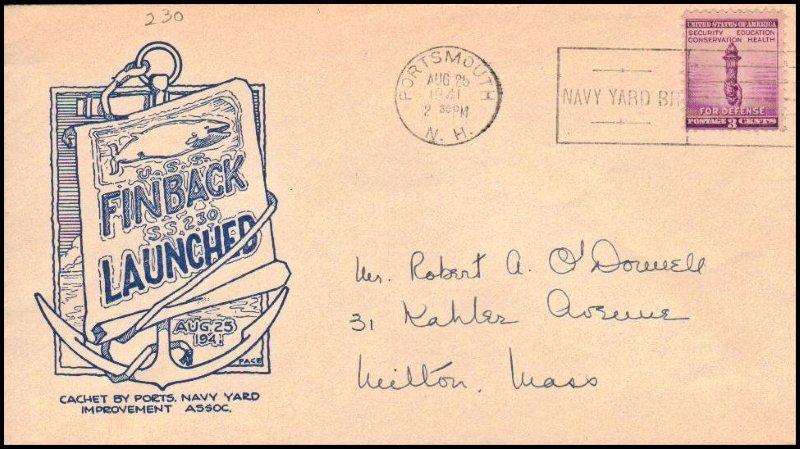 230
U.S.S.
FINBACK
S.S.230
LAUNCHED
AUG.25
1941
PACE
CACHET BY PORTS. NAVY YARD
IMPROVEMENT ASSOC.
PORTSMOUTH
AUG 25
1941
2 30PM
N. H.
NAVY YARD BR
UNITED STATES OF AMERICA
SECURITY EDUCATION
CONSERVATION HEALTH
FOR DEFENSE
POSTAGE 3 CENTS
Mr. Robert A. O'Donnell
31 Kahler Avenue
Milton, Mass